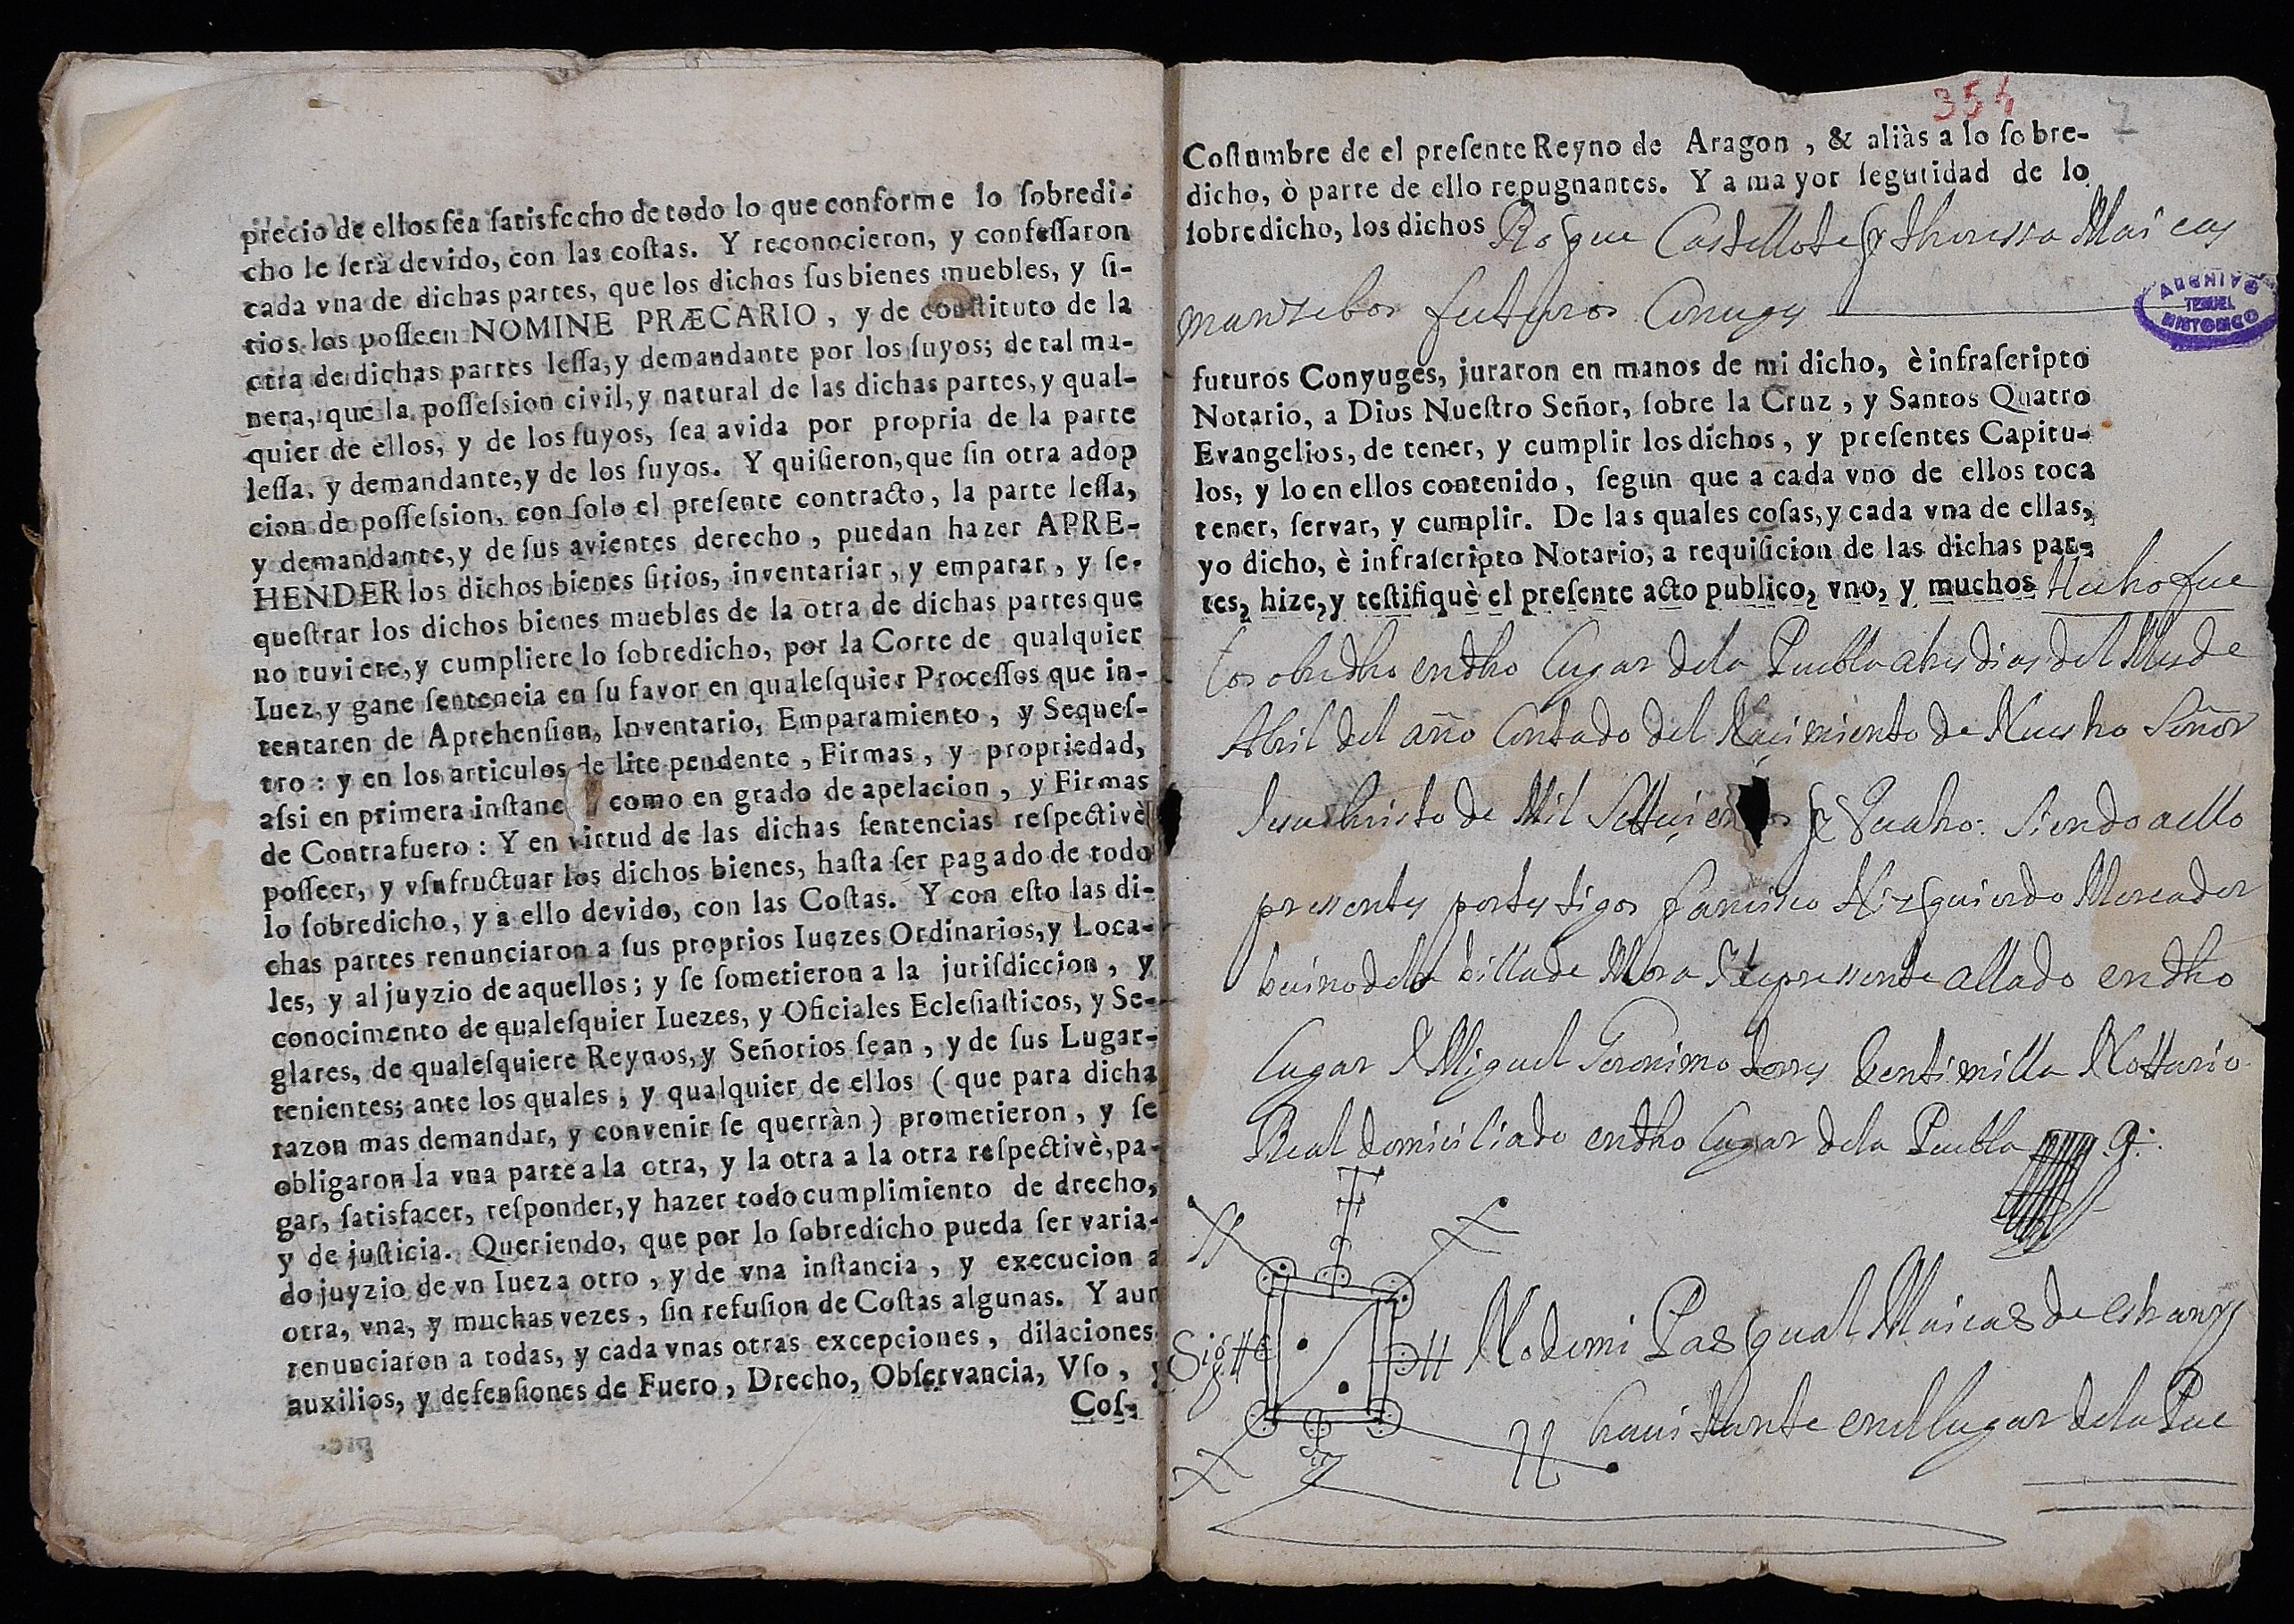 precio de ellos sea satisfecho de todo lo que conforme lo sobredi-
cho le serà devido, con las costas. Y reconocieron, y confessaron
cada vna de dichas partes, que los dichos sus bienes muebles, y si-
tios los posseen NOMINE PRÆCARIO, y de constituto de la
otra de dichas partes lessa, y demandante por los suyos; de tal ma-
nera, que la possession civil, y natural de las dichas partes, y qual-
quier de ellos, y de los suyos, sea avida por propria de la parte
lessa, y demandante, y de los suyos. Y quisieron, que sin otra adop
cion de possession, con solo el presente contracto, la parte lessa,
y demandante, y de sus avientes derecho, puedan hazer APRE-
HENDER los dichos bienes sitios, inventariar, y emparar, y se-
questrar los dichos bienes muebles de la otra de dichas partes que
no tuviere, y cumpliere lo sobredicho, por la Corte de qualquier
Iuez, y gane senteneia en su favor en qualesquier Processos que in-
tentaren de Aprehension, Inventario, Emparamiento, y Seques-
tro: y en los articulos de lite pendente, Firmas, y propriedad,
assi en primera instanc como en grado de apelacion, y Firmas
de Contrafuero: Y en virtud de las dichas sentencias respectivè
posseer, y vsufructuar los dichos bienes, hasta ser pagado de todo
lo sobredicho, y a ello devido, con las Costas. Y con esto las di-
chas partes renunciaron a sus proprios Iuezes Ordinarios, y Loca-
les, y al juyzio de aquellos; y se sometieron a la jurisdiccion, y
conocimento de qualesquier Iuezes, y Oficiales Eclesiasticos, y Se-
glares, de qualesquiere Reynos, y Señorios sean, y de sus Lugar-
tenientes; ante los quales, y qualquier de ellos (que para dicha
razon mas demandar, y convenir se querràn) prometieron, y se
obligaron la vna parte a la otra, y la otra a la otra respectivè, pa-
gar, satisfacer, responder, y hazer todo cumplimiento de drecho,
y de justicia. Queriendo, que por lo sobredicho pueda ser varia-
do juyzio de vn Iuez a otro, y de vna instancia, y execucion a
otra, vna, y muchas vezes, sin refusion de Costas algunas. Y aun
renunciaron a todas, y cada vnas otras excepciones, dilaciones
auxilios, y defensiones de Fuero, Drecho, Observancia, Vso, y
Cos-
354 7
Costumbre de el presente Reyno de Aragon, & aliàs a lo sobre-
dicho, ò parte de ello repugnantes. Y a mayor seguridad de lo
sobredicho, los dichos Rosque Castellote y theressa Maicas
manzebos futuros Conuges
ARCHIVO
TERUEL
HISTORICO
futuros Conyuges, juraron en manos de mi dicho, è infrascripto
Notario, a Dios Nuestro Señor, sobre la Cruz, y Santos Quatro
Evangelios, de tener, y cumplir los dichos, y presentes Capitu-
los, y lo en ellos contenido, segun que a cada vno de ellos toca
tener, servar, y cumplir. De las quales cosas, y cada vna de ellas,
yo dicho, è infrascripto Notario, a requisicion de las dichas par-
tes, hize, y testifiquè el presente acto publico, vno, y muchos Hecho fue
los obredho endho lugar dela Puebla a tres dias del Mes de
Abril del año Contado del Nacimiento de Nuestro Señor
Jesuchristo de Mil Settecientos y Quatro: Siendo aello
pressentes portestigos francisco Yizquierdo Mercader
becino dela billa de Mora pressente allado endho
lugar Y Miguel Geronimo torres bentimilla Nottario
Real domiciliado endho lugar dela Puebla
Sig+No demi Pasqual Maicas de estranys
hauittante en el lugar dela Pue